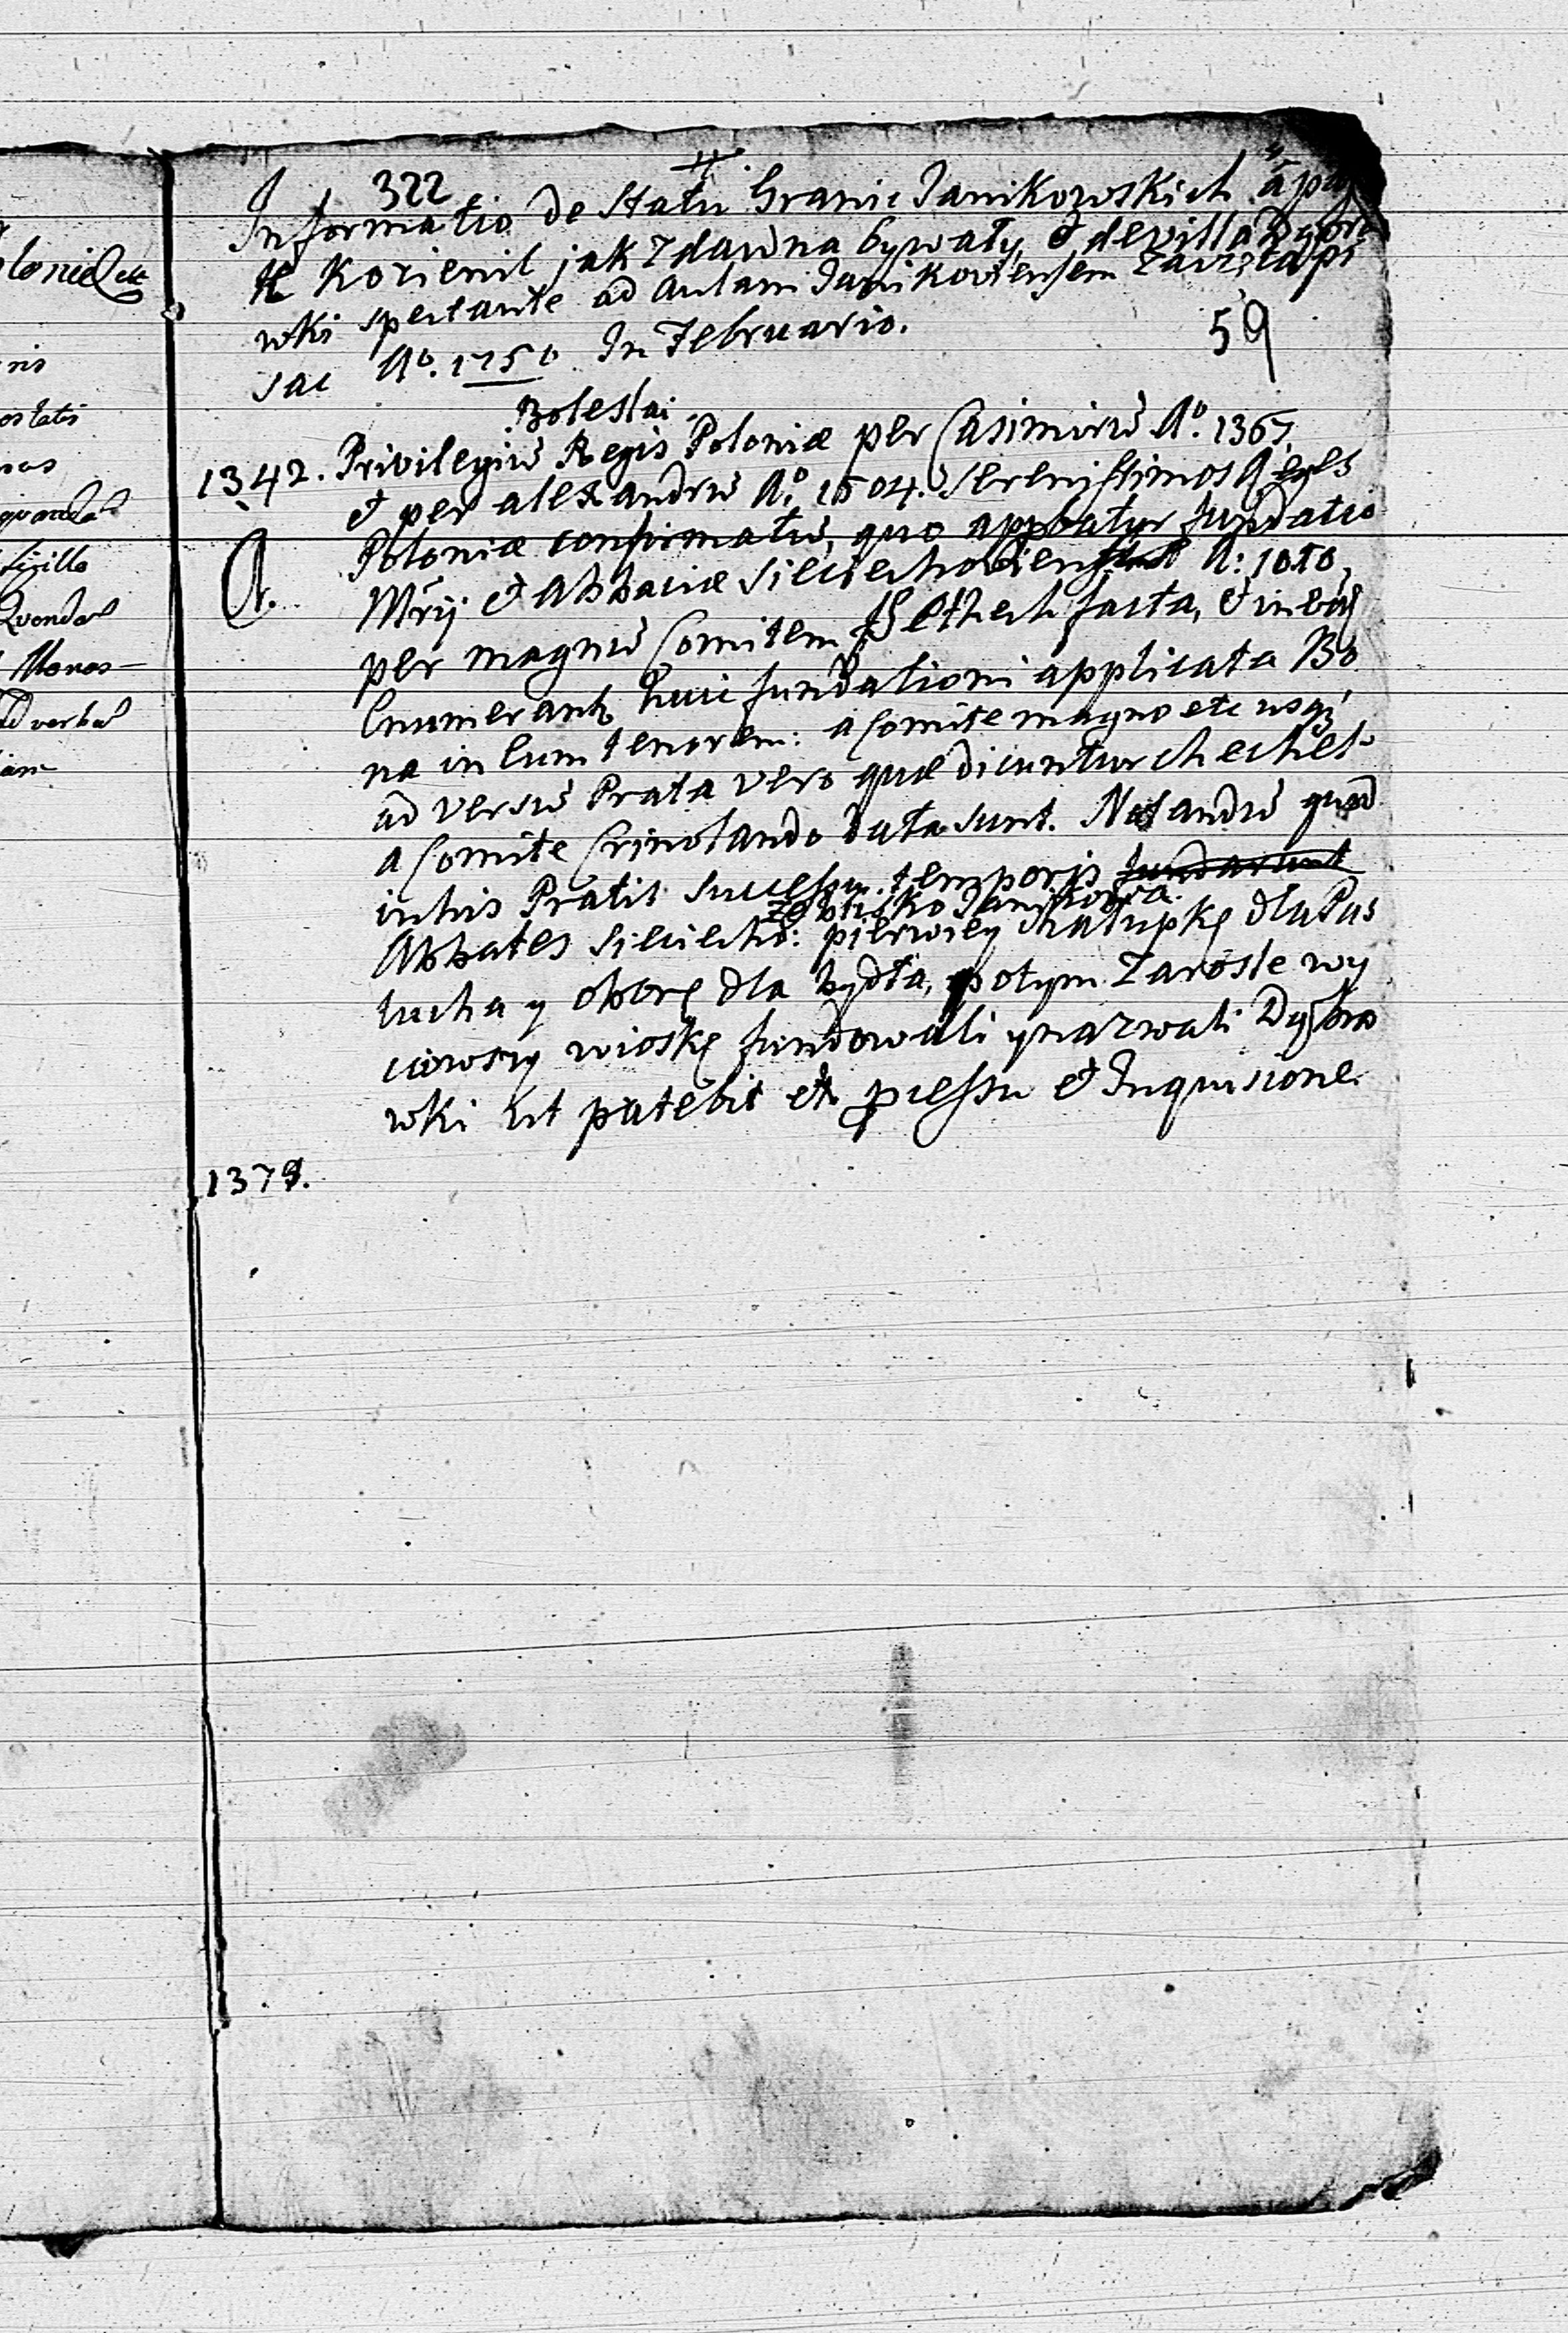 loniæ etc
nis
ostatis
Lirillo
Quondã
Monas-
ad verbũ
322
4
Informatio de Statu Granic Janikowskich à pa
te Kozienic jak zdawna bywały, & de villa Dąbro
wki spectante ad aulam Janikoviensem zaczęta pi
sac Aº. 1750 In Februario.
59
Boleslai
1342. Privilegiũ Regis Poloniæ per Casimirũ Aº. 1365.
& per alexandrũ Aº. 1504. Serenissimos Reges
A. Poloniæ confirmatũ, quo approbatur fundatio
Mrij & Abbaciæ Sieciechovien A: 1010,
per magnũ Comitem Sethech facta, & in eaq
enumerantr huic fundationi applicata Bo
na in eum tenorem: a Comite magno etc usq
ad versũ Prata vero quæ dicuntur chechel
a Comite Crinolando data sunt. Notandũ quod
in his Pratis successu temporis fundarunt
ze blisko Janikowa.
Abbates Sieciecho: pierwiey chałupkę dla Pas
tucha y oborę dla bydła, potym zarosle wy
ciowszy wioskę fundowali y nazwali Dąbro
wki ut patebit ex pcessu & Inquisicione.
1379.